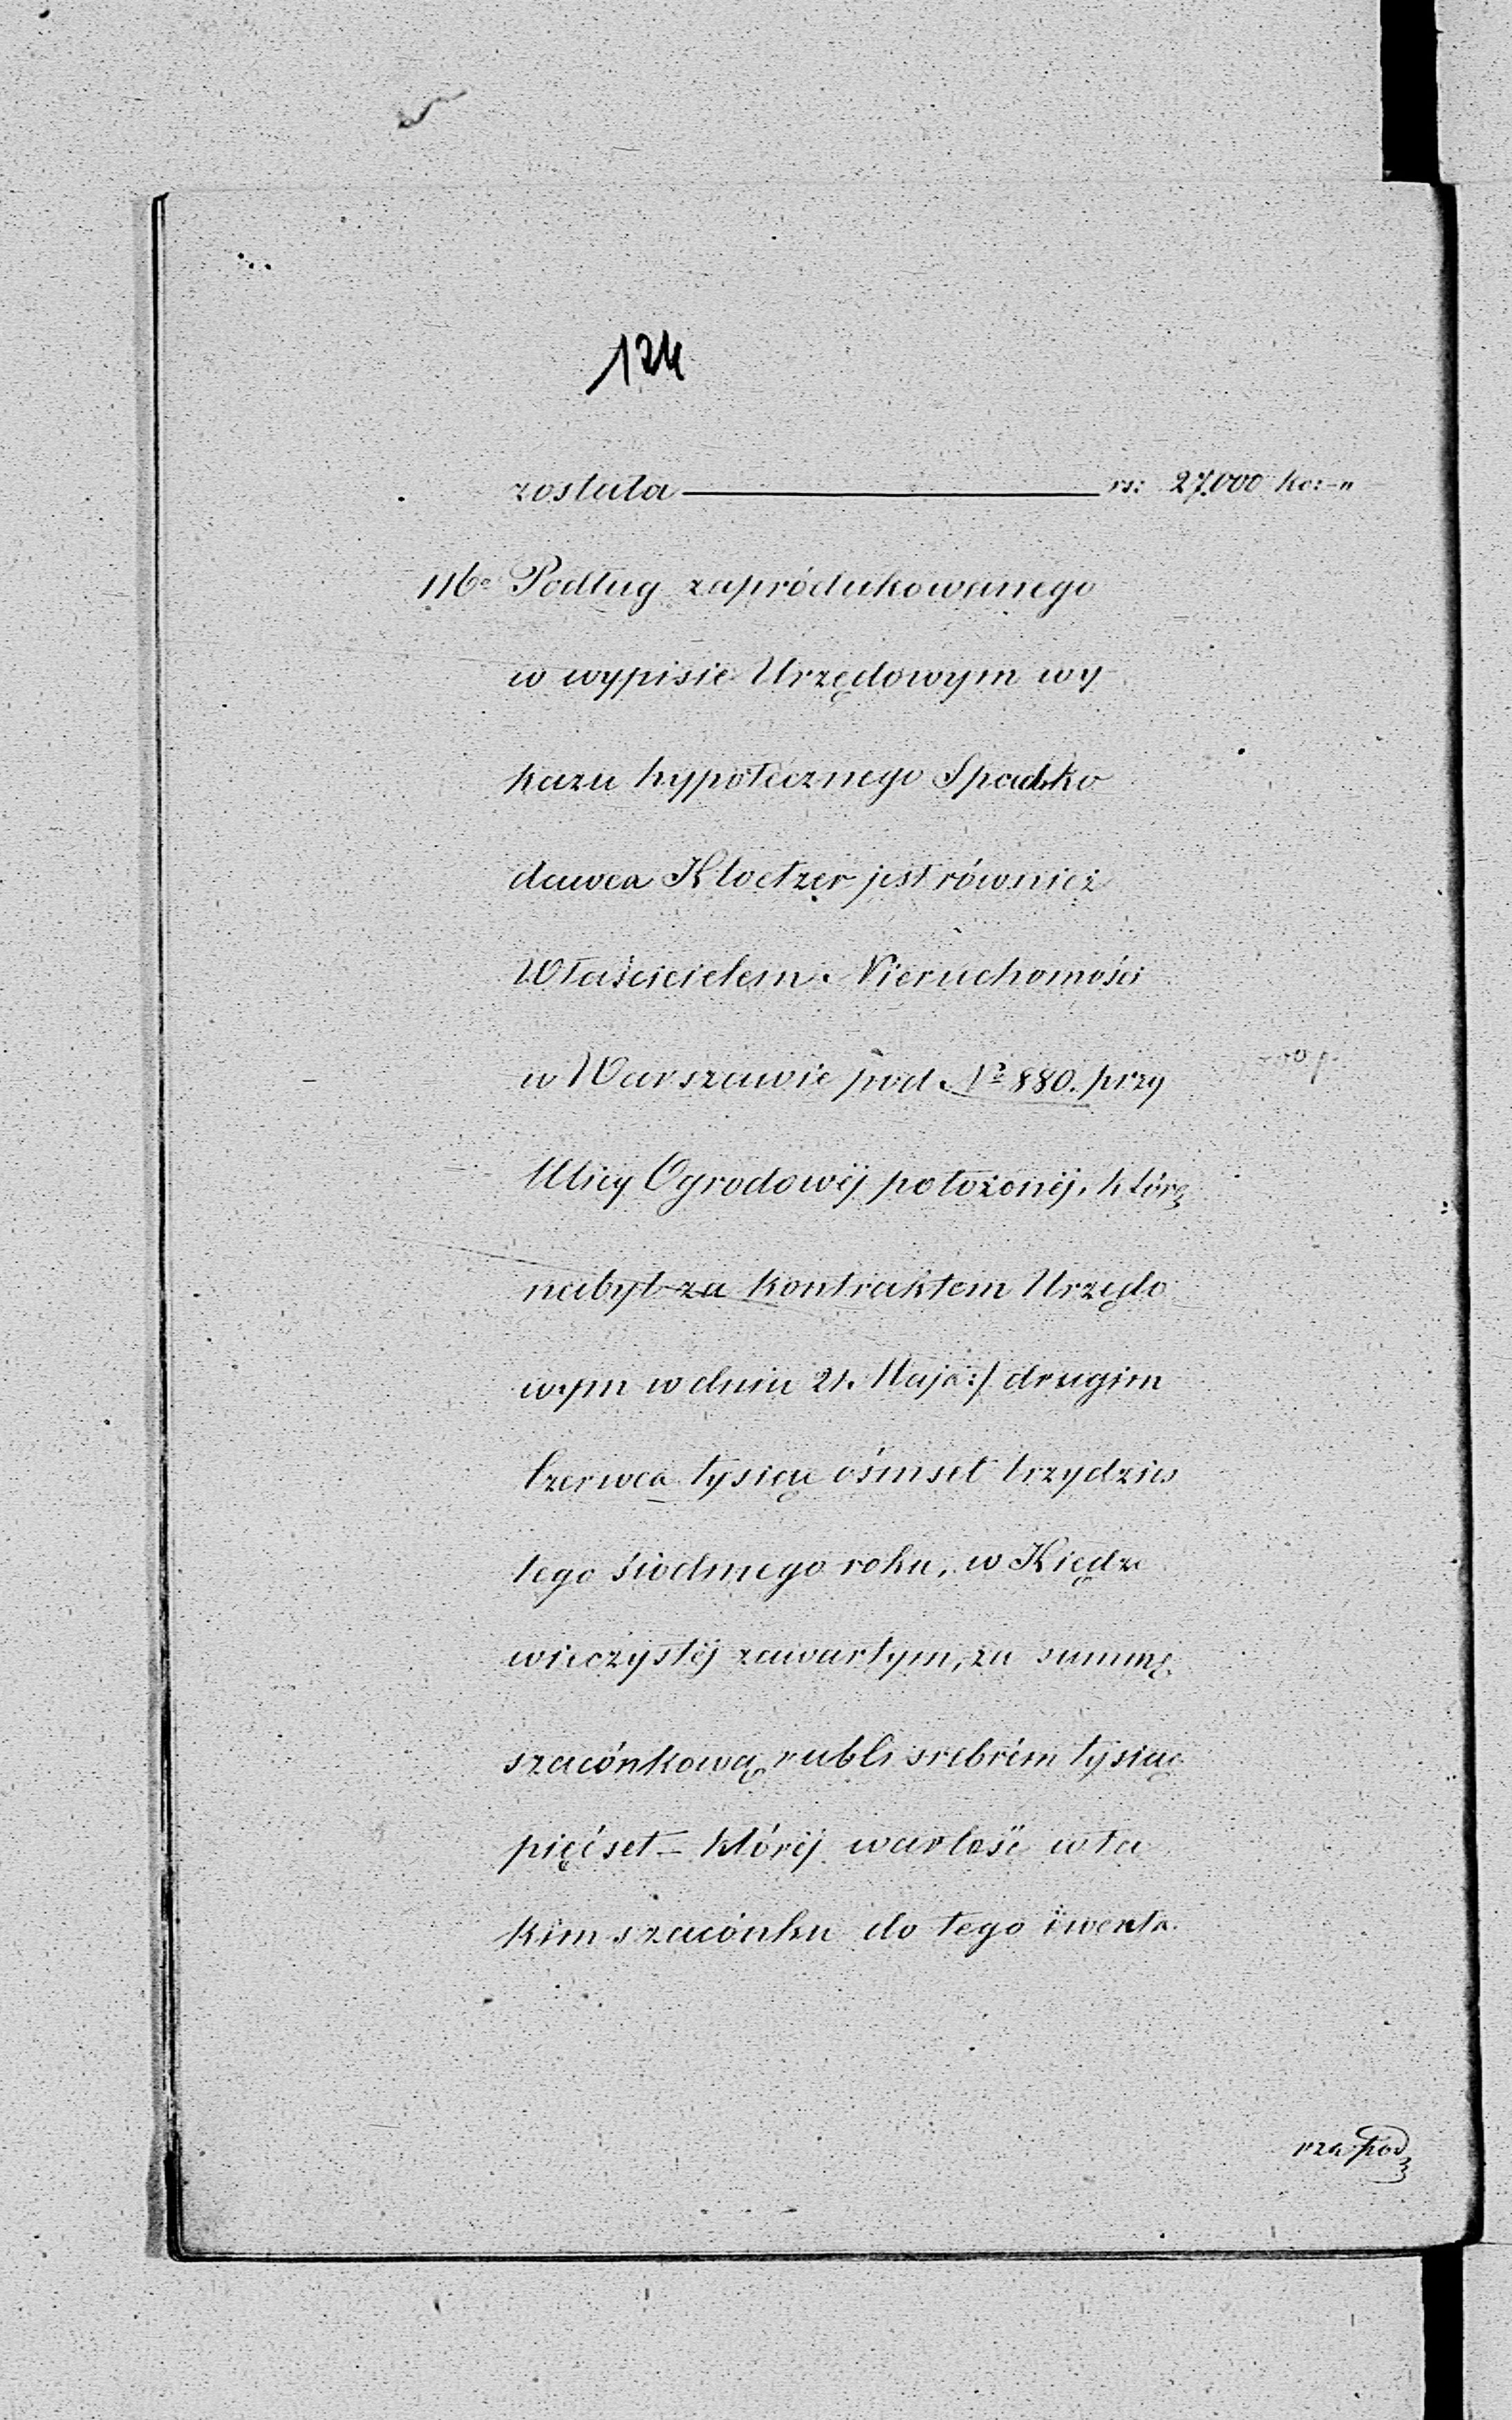 124
została ——— rs: 27.000 ko: – "
116° Podług zaprodukowanego
w wypisie Urzędowym wy
kazu hypotecznego Spadko
dawca Kloetzer jest również
Właścicielem Nieruchomości
w Warszawie pod No 880. przy
Ulicy Ogrodowéj położonéj, którą
nabył za kontraktem Urzędo
wym w dniu 21. Maja:/ drugim
Czerwca tysiąc ośmset trzydzies
tego siódmego roku, w Księdze
wieczystéj zawartym, za summę
szacónkową rubli srebrém tysiąc
pięćset – któréj wartość w ta
kim szacónku do tego inwenta
rza pod